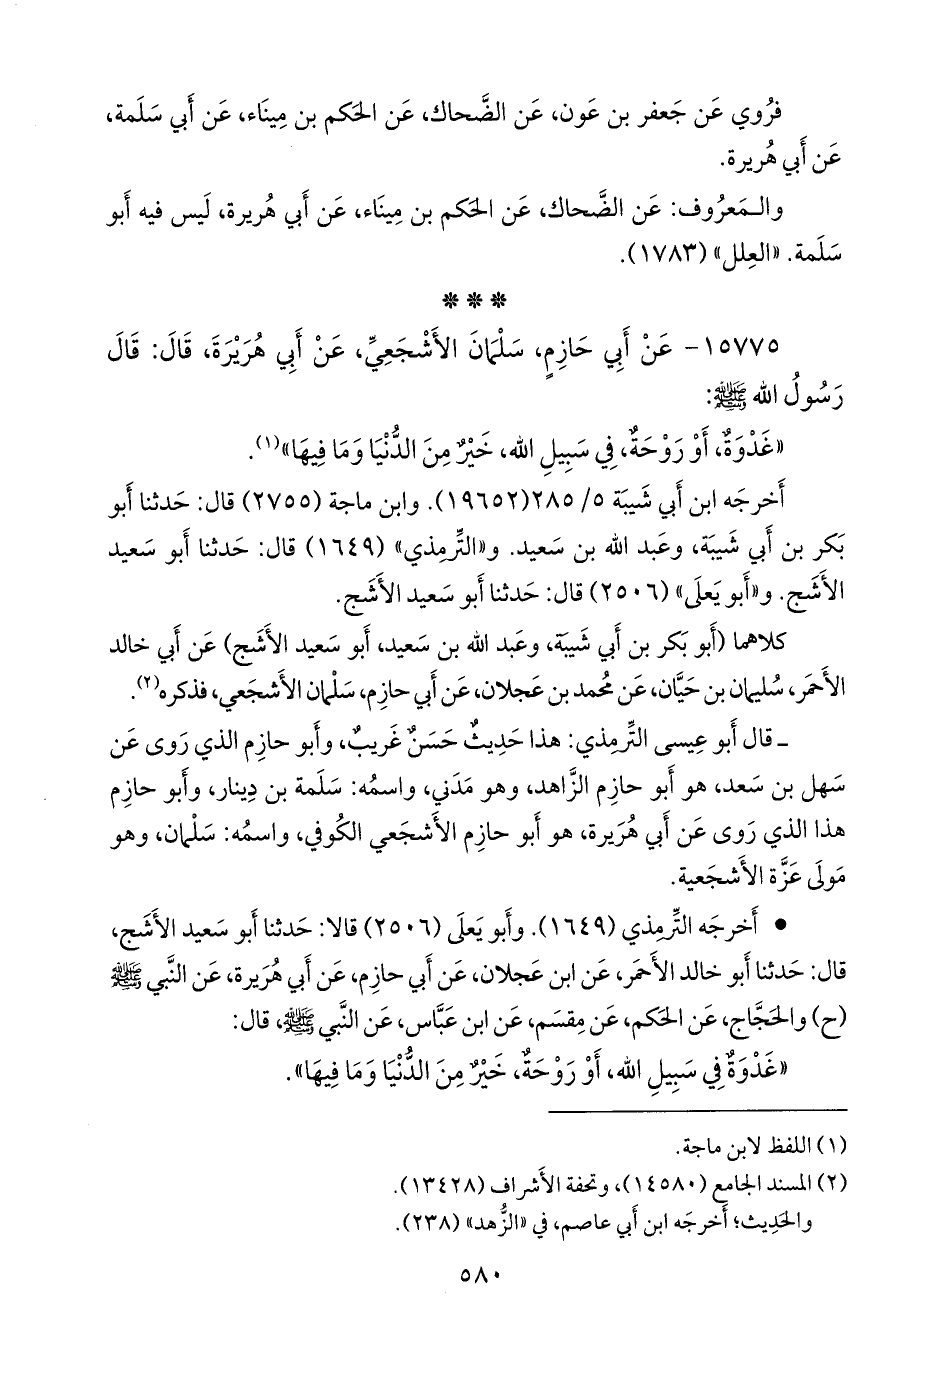 فرُوي عَن جَعفر بن عَون، عَن الضَّحاك، عَن الحَكم بن مِينَاء، عَن أَبي سَلَمة،
عَن أَبي هُريرة.
والـمَعرُوف: عَن الضَّحاك، عَن الحَكم بن مِينَاء، عَن أَبي هُريرة، لَيس فيه أَبو
سَلَمة. «العِلل» (١٧٨٣).
* * *
١٥٧٧٥- عَنْ أَبِي حَازِمٍ، سَلْمَانَ الأَشْجَعِيِّ، عَنْ أَبِي هُرَيْرَةَ، قَالَ: قَالَ
رَسُولُ الله ﷺ:
«غَدْوَةٌ، أَوْ رَوْحَةٌ، فِي سَبِيلِ الله، خَيْرٌ مِنَ الدُّنْيَا وَمَا فِيهَا»(١).
أَخرجَه ابن أَبي شَيبَة ٥/ ٢٨٥(١٩٦٥٢). وابن ماجة (٢٧٥٥) قال: حَدثنا أَبو
بَكر بن أَبي شَيبَة، وعَبد الله بن سَعيد. و«التِّرمِذي» (١٦٤٩) قال: حَدثنا أَبو سَعيد
الأَشَج. و«أَبو يَعلَى» (٢٥٠٦) قال: حَدثنا أَبو سَعيد الأَشَج.
كلاهما (أَبو بَكر بن أَبي شَيبَة، وعَبد الله بن سَعيد، أَبو سَعيد الأَشَج) عَن أَبي خالد
الأَحمَر، سُليمان بن حَيَّان، عَن مُحمد بن عَجلان، عَن أَبي حازِم، سَلْمان الأَشجَعي، فذكره(٢).
ـ قال أَبو عِيسى التِّرمِذي: هذا حَدِيثٌ حَسَنٌ غَريبٌ، وأَبو حازِم الذي رَوى عَن
سَهل بن سَعد، هو أَبو حازِم الزَّاهد، وهو مَدَني، واسمُه: سَلَمة بن دِينار، وأَبو حازِم
هذا الذي رَوى عَن أَبي هُرَيرة، هو أَبو حازِم الأَشجَعي الكُوفي، واسمُه: سَلْمان، وهو
مَولَى عَزَّة الأَشجَعية.
• أَخرجَه التِّرمِذي (١٦٤٩). وأَبو يَعلَى (٢٥٠٦) قالا: حَدثنا أَبو سَعيد الأَشَج،
قال: حَدثنا أَبو خالد الأَحمَر، عَن ابن عَجلان، عَن أَبي حازِم، عَن أَبي هُرَيرة، عَن النَّبي ﷺ
(ح) والحَجَّاج، عَن الحَكم، عَن مِقسَم، عَن ابن عَبَّاس، عَن النَّبي ﷺ، قال:
«غَدْوَةٌ فِي سَبِيلِ الله، أَوْ رَوْحَةٌ، خَيْرٌ مِنَ الدُّنْيَا وَمَا فِيهَا».
(١) اللفظ لابن ماجة.
(٢) المسند الجامع (١٤٥٨٠)، وتحفة الأَشراف (١٣٤٢٨).
والحَدِيث؛ أَخرجَه ابن أَبي عاصم، في «الزُّهد» (٢٣٨).
٥٨٠